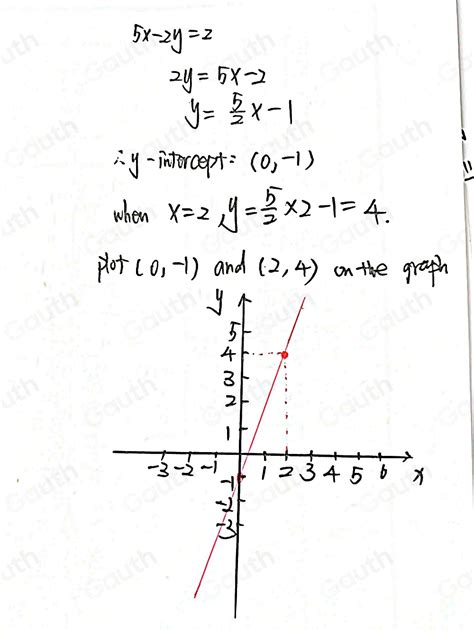 5x-2y=2
2y = 5x-2
y = 5/2 x - 1
∴ y-intercept: (0,-1)
when x=2, y = 5/2 ×2-1 = 4.
plot (0,-1) and (2,4) on the graph
y
5
4
3
2
1
-3 -2 -1 1 2 3 4 5 6 x
-1
-2
-3
Gauth